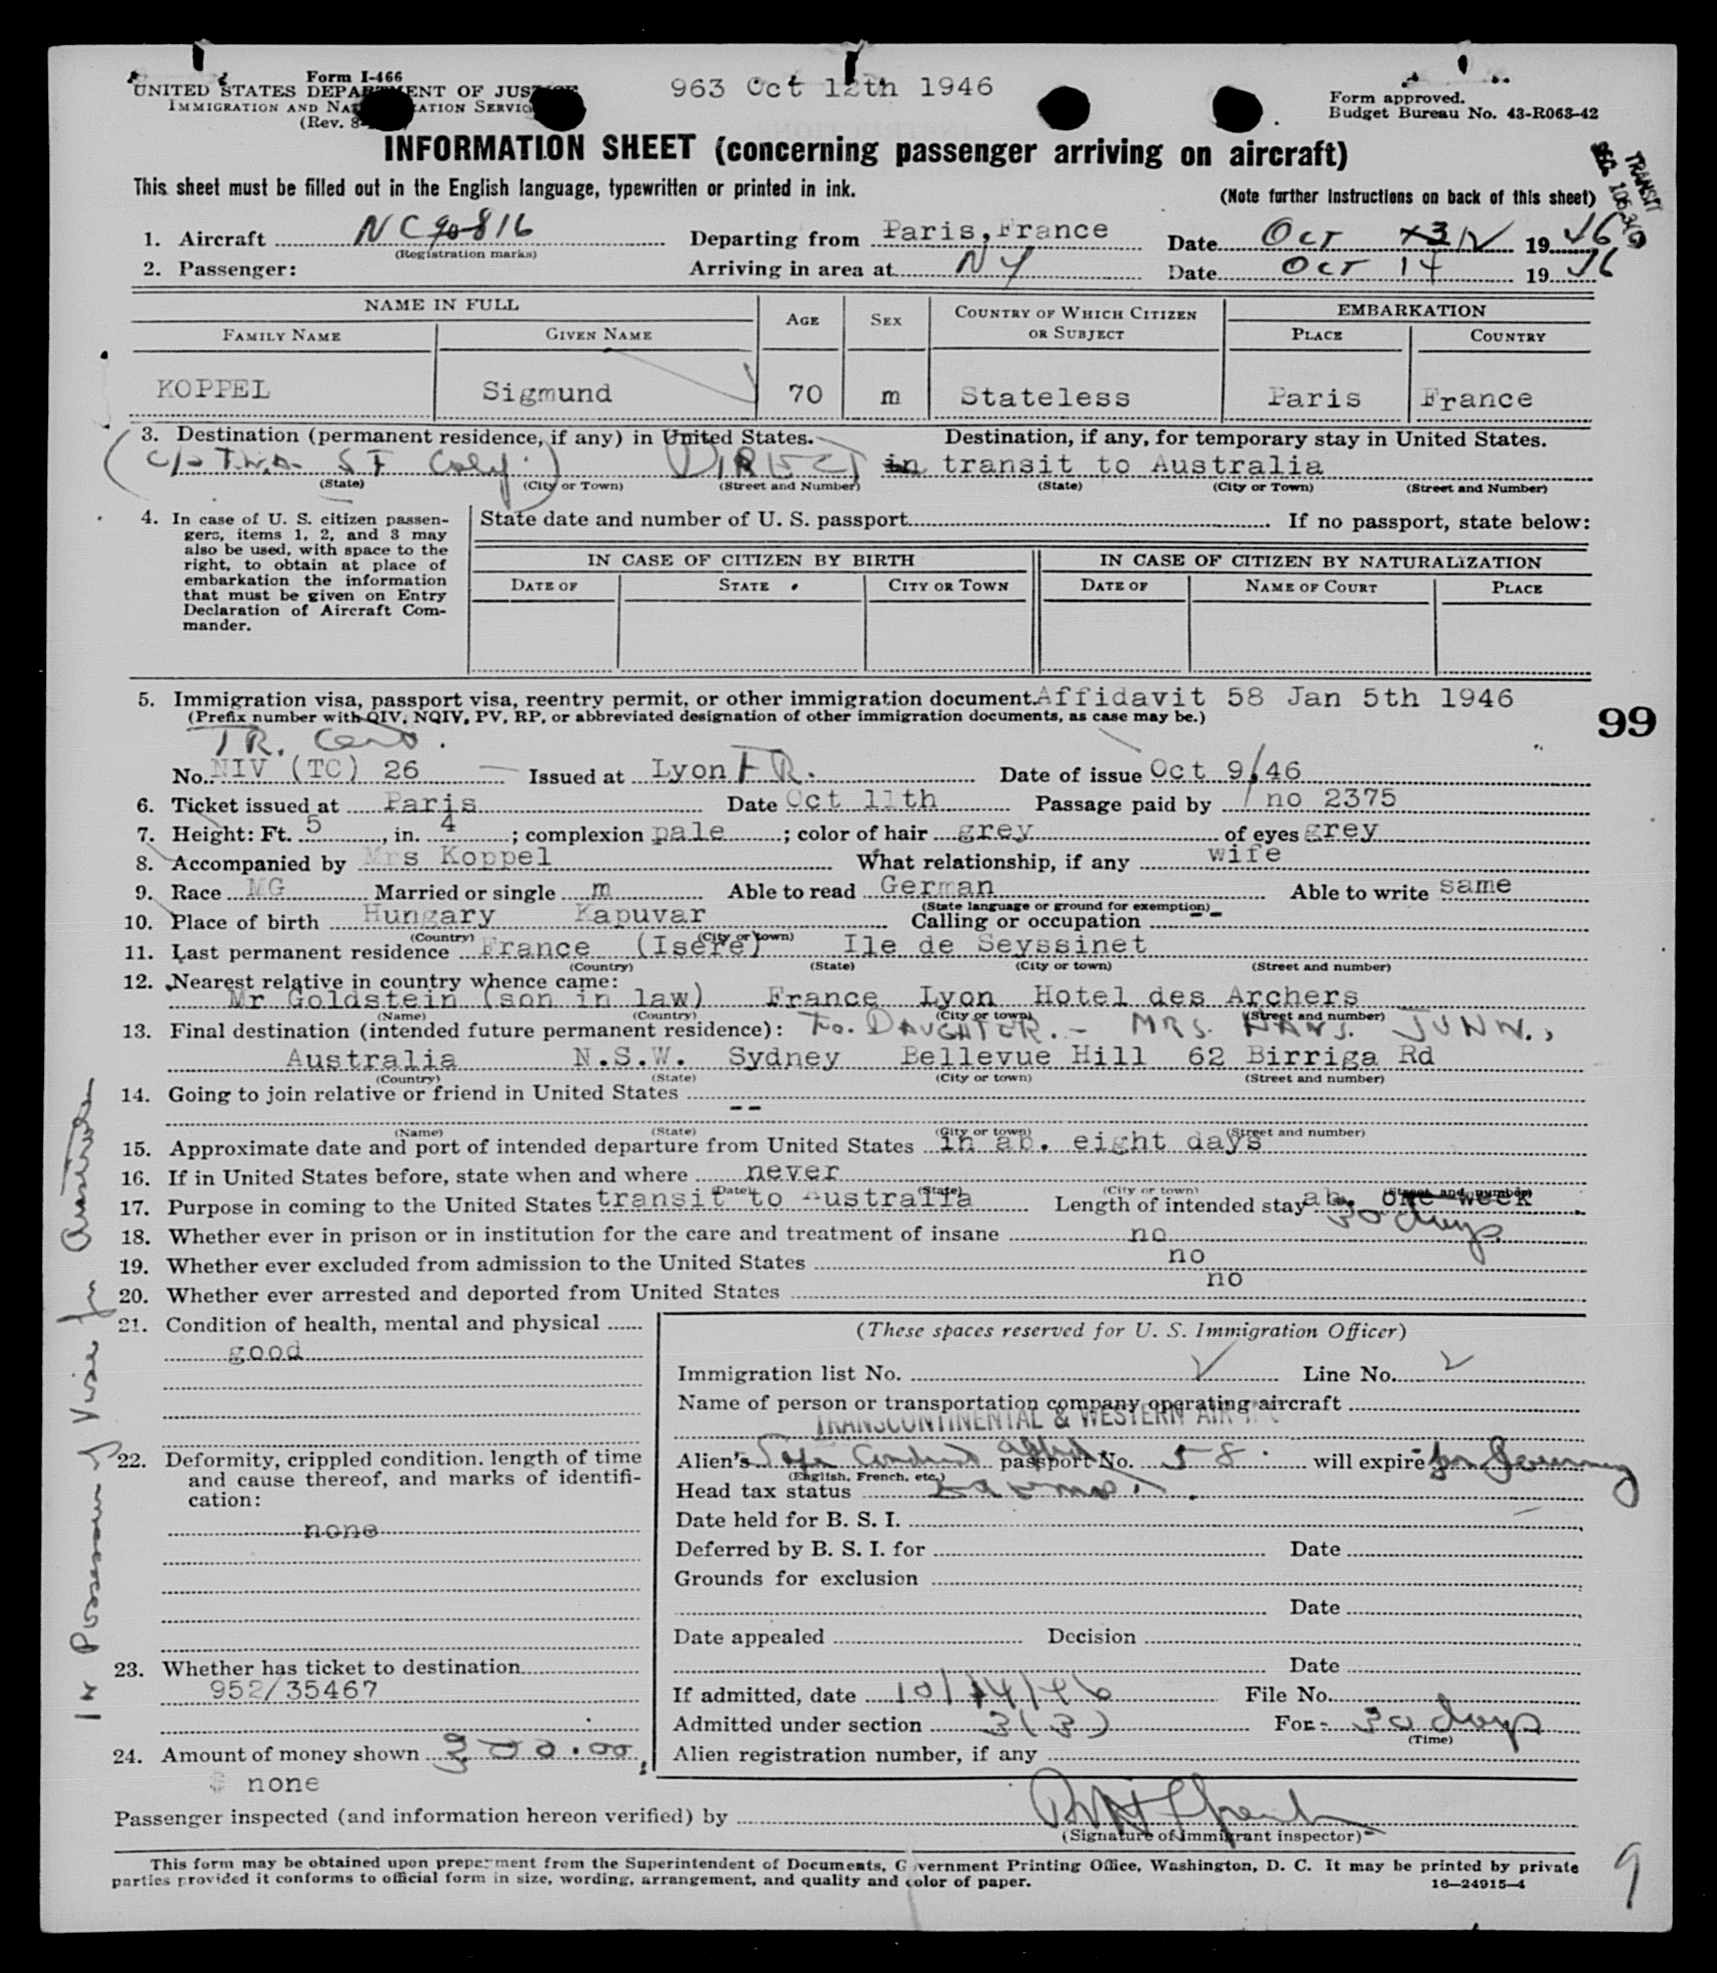 Form I-466
UNITED STATES DEPARTMENT OF JUSTICE
IMMIGRATION AND NATURALIZATION SERVICE
(Rev. 8-
963 Oct 12th 1946
Form approved.
Budget Bureau No. 43-R063-42
INFORMATION SHEET (concerning passenger arriving on aircraft)
This sheet must be filled out in the English language, typewritten or printed in ink.
(Note further instructions on back of this sheet)
TRANSIT
1. Aircraft NC 90816 Departing from Paris, France Date Oct 12 1946
(Registration marks)
2. Passenger: Arriving in area at NY Date Oct 14 1946
NAME IN FULL
FAMILY NAME GIVEN NAME AGE SEX COUNTRY OF WHICH CITIZEN OR SUBJECT EMBARKATION PLACE COUNTRY
KOPPEL Sigmund 70 m Stateless Paris France
3. Destination (permanent residence, if any) in United States. Destination, if any, for temporary stay in United States.
(c/o T.W.A. SF Calif.) DIRECT in transit to Australia
(State) (City or Town) (Street and Number) (State) (City or Town) (Street and Number)
4. In case of U. S. citizen passengers, items 1, 2, and 3 may also be used, with space to the right, to obtain at place of embarkation the information that must be given on Entry Declaration of Aircraft Commander.
State date and number of U. S. passport If no passport, state below:
IN CASE OF CITIZEN BY BIRTH IN CASE OF CITIZEN BY NATURALIZATION
DATE OF STATE CITY OR TOWN DATE OF NAME OF COURT PLACE
5. Immigration visa, passport visa, reentry permit, or other immigration document. Affidavit 58 Jan 5th 1946
(Prefix number with QIV, NQIV, PV, RP, or abbreviated designation of other immigration documents, as case may be.)
99
TR. Cert.
No. NIV (TC) 26 Issued at Lyon FR. Date of issue Oct 9/46
6. Ticket issued at Paris Date Oct 11th Passage paid by no 2375
7. Height: Ft. 5, in. 4; complexion pale; color of hair grey of eyes grey
8. Accompanied by Mrs Koppel What relationship, if any wife
9. Race MG Married or single m Able to read German Able to write same
(State language or ground for exemption)
10. Place of birth Hungary Kapuvar Calling or occupation --
(Country) (City or town)
11. Last permanent residence France (Isere) Ile de Seyssinet
(Country) (State) (City or town) (Street and number)
12. Nearest relative in country whence came:
Mr Goldstein (son in law) France Lyon Hotel des Archers
(Name) (Country) (City or town) (Street and number)
13. Final destination (intended future permanent residence): To. DAUGHTER. - MRS. HANS. JUNN.,
Australia N.S.W. Sydney Bellevue Hill 62 Birriga Rd
(Country) (State) (City or town) (Street and number)
14. Going to join relative or friend in United States
--
(Name) (State) (City or town) (Street and number)
15. Approximate date and port of intended departure from United States in ab. eight days
16. If in United States before, state when and where never
(Date) (State) (City or town) (Street and number)
17. Purpose in coming to the United States transit to Australia Length of intended stay ab. one week
30 days
18. Whether ever in prison or in institution for the care and treatment of insane no
19. Whether ever excluded from admission to the United States no
20. Whether ever arrested and deported from United States no
21. Condition of health, mental and physical
good
22. Deformity, crippled condition. length of time and cause thereof, and marks of identification:
none
23. Whether has ticket to destination
952/35467
24. Amount of money shown 300.00
$ none
In Possession of Visa for Australia
(These spaces reserved for U. S. Immigration Officer)
Immigration list No. V Line No. 2
Name of person or transportation company operating aircraft
TRANSCONTINENTAL & WESTERN AIR
Alien's Safe Conduct passport No. 58. will expire for Journey
(English, French, etc.)
Head tax status
Date held for B. S. I.
Deferred by B. S. I. for Date
Grounds for exclusion
Date
Date appealed Decision
Date
If admitted, date 10/14/46 File No.
Admitted under section 3(3) For 30 days
(Time)
Alien registration number, if any
Passenger inspected (and information hereon verified) by
(Signature of immigrant inspector)
This form may be obtained upon prepayment from the Superintendent of Documents, Government Printing Office, Washington, D. C. It may be printed by private
parties provided it conforms to official form in size, wording, arrangement, and quality and color of paper.
16—24915-4
9